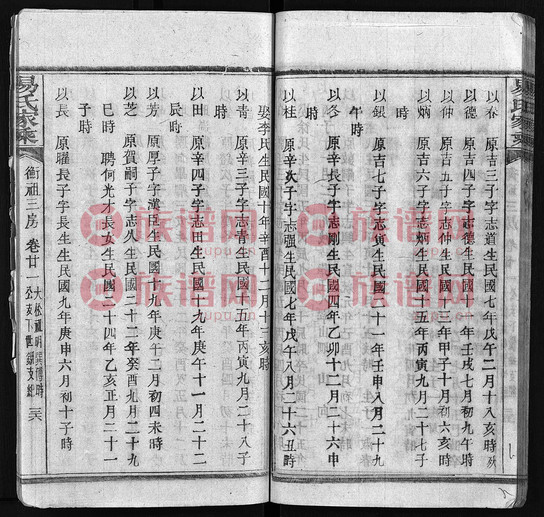 以春 原吉三子字志道生民國七年戊午二月十八亥時
以德 原吉四子字志德生民國十年壬戌七月初九午時
以仲 原吉五子字志仲生民國十三年甲子十月初六亥時
以炳 原吉六子字志炳生民國十五年丙寅九月二十七子
時
以銀 原吉七子字志寅生民國二十一年壬申八月二十九
午時
以冬 原辛長子字志剛生民國四年乙卯十二月二十六申
時
以桂 原辛次子字志强生民國七年戊午八月二十六丑時
娶李氏生民國十年辛酉十二月十三亥時
以青 原辛三子字志青生民國十五年丙寅九月二十八子
時
以田 原辛四子字志田生民國十九年庚午十一月二十二
辰時
以芳 原厚子字漢民生民國十九年庚午二月初四未時
以芝 原賀嗣子字志人生民國二十二年癸酉九月二十九
巳時 聘何光才長女生民國二十四年乙亥正月二十一
子時
以長 原躍長子字長生生民國九年庚申六月初十子時
易氏家乘
衡祖三房 卷廿一
族谱网